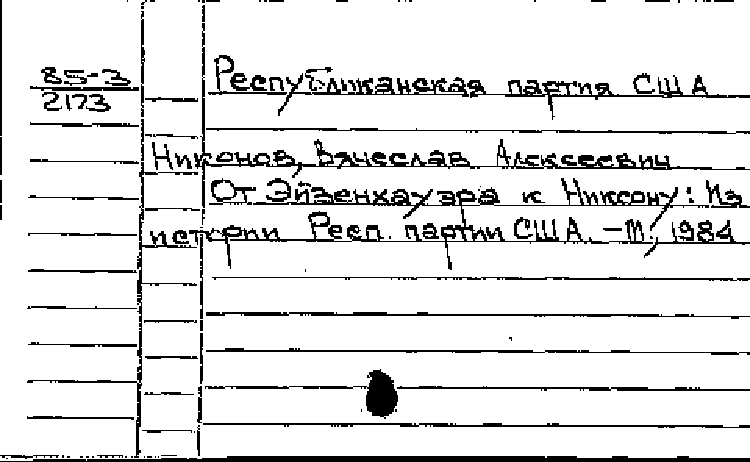 85-3
2173
Республиканская партия США
Никонов, Вячеслав Алексеевич
От Эйзенхауэра к Никсону: Из
истории Респ. партии США. – М., 1984